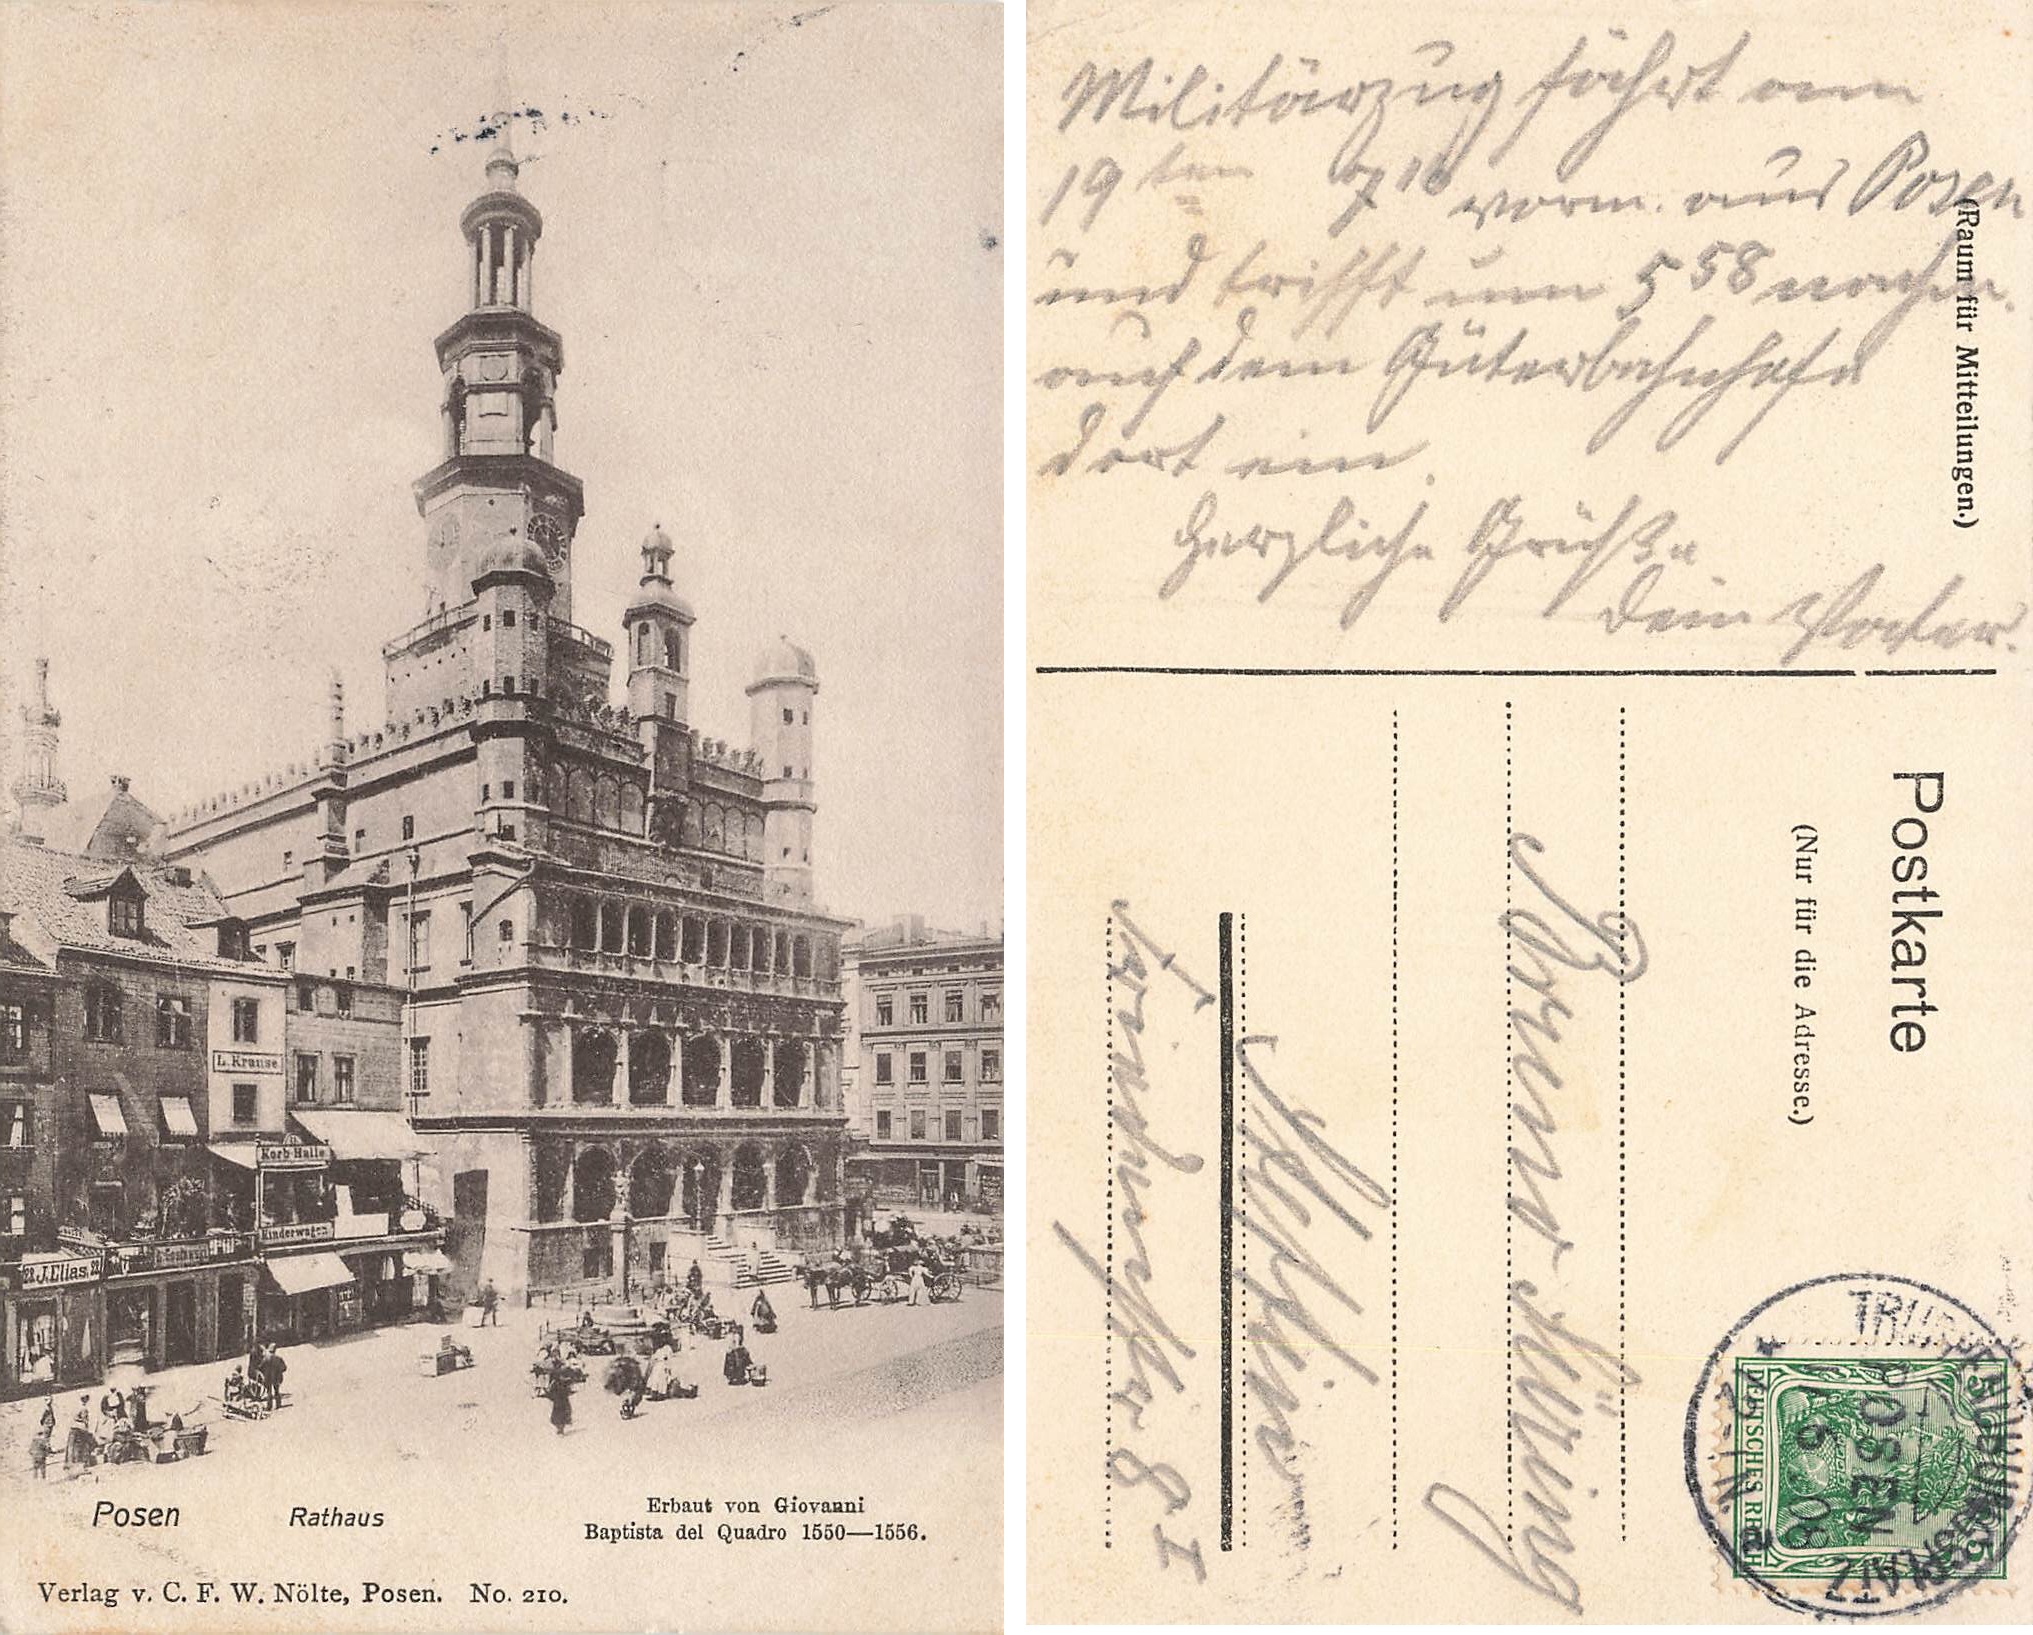 L. Krause.
Korb-Halle
Kinderwagen
22 J. Elias. 22
Posen Rathaus
Erbaut von Giovanni
Baptista del Quadro 1550—1556.
Verlag v. C. F. W. Nölte, Posen. No. 210.
Militärzug fährt am
19ten 7 16 vorm. aus Posen
und trifft um 5 58 nachm.
auf dem Güterbahnhofe
dort ein.
Herzliche Grüße
Dein Vater.
(Raum für Mitteilungen.)
Postkarte
(Nur für die Adresse.)
Bruno Düring
Stettin
8 I
TRUPPENÜBUNGSPLATZ
POSEN
5 08
DEUTSCHES REICH
5 5